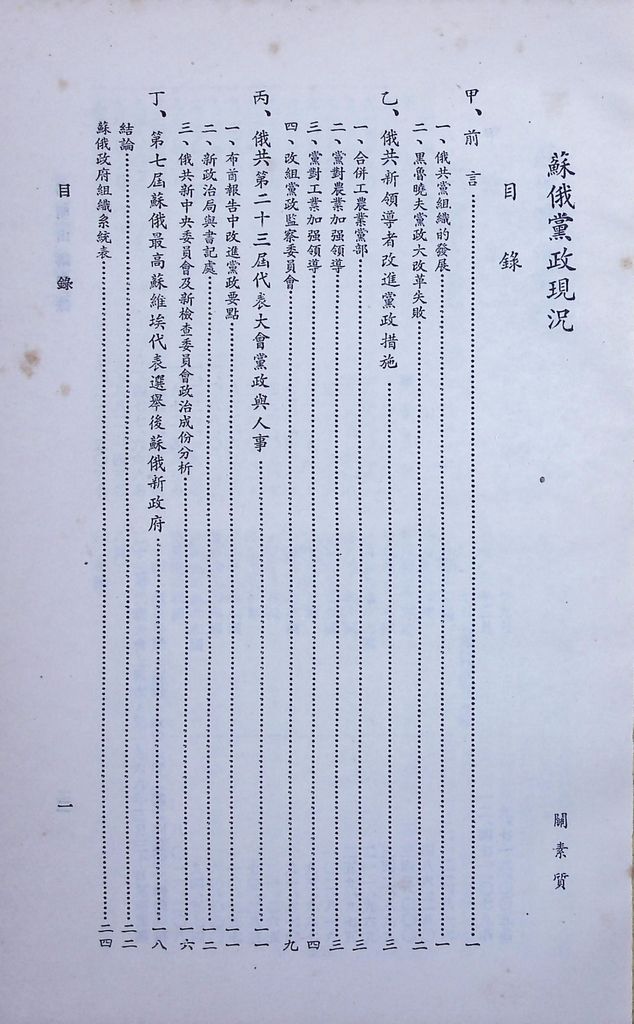 蘇俄黨政現況
關素質
目錄
甲、前言……一
一、俄共黨組織的發展……一
二、黑魯曉夫黨政大改革失敗……二
乙、俄共新領導者改進黨政措施……三
一、合併工農業黨部……三
二、黨對農業加强領導……三
三、黨對工業加强領導……四
四、改組黨政監察委員會……九
丙、俄共第二十三屆代表大會黨政與人事……一一
一、布酋報告中改進黨政要點……一一
二、新政治局與書記處……一二
三、俄共新中央委員會及新檢查委員會政治成份分析……一六
丁、第七屆蘇俄最高蘇維埃代表選舉後蘇俄新政府……一八
結論……二二
蘇俄政府組織系統表……二四
目錄
一